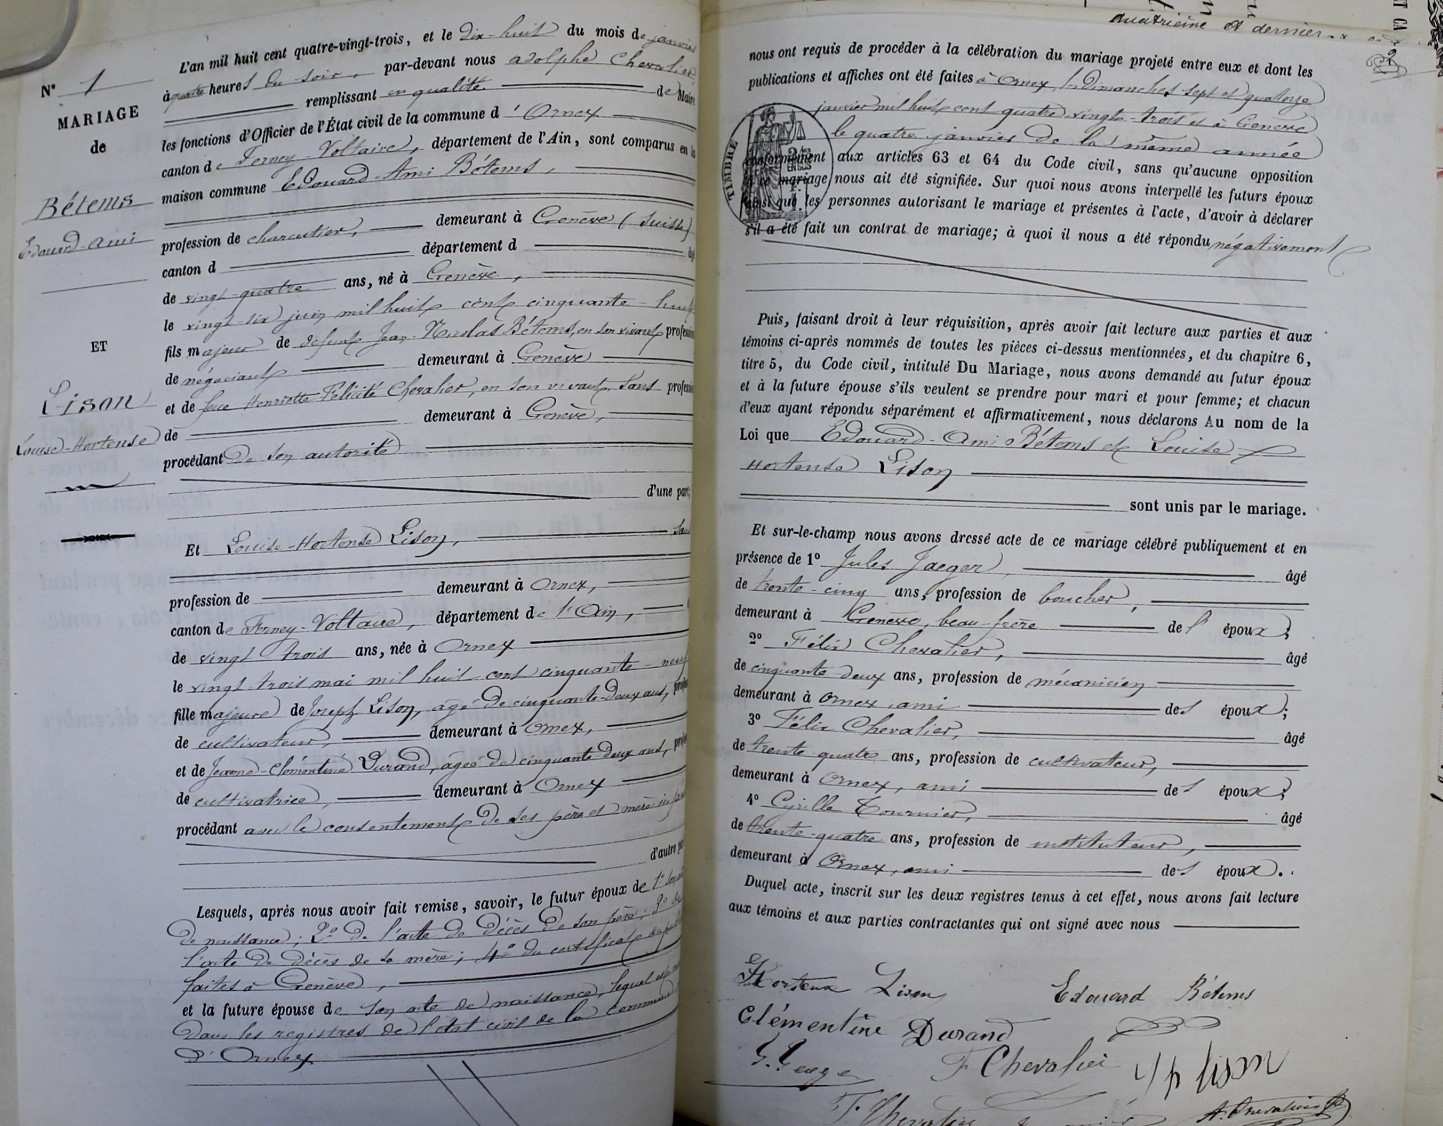 N° 1
MARIAGE
de
Bétems
Edouard Ami
ET
Lison
Louise-Hortense
L'an mil huit cent quatre-vingt-trois, et le dix-huit du mois de janvier
à quatre heures du soir, par-devant nous adolphe Chevalier
remplissant en qualité de Maire
les fonctions d'Officier de l'État civil de la commune d'Ornex
canton de Ferney-Voltaire, département de l'Ain, sont comparus en la
maison commune Edouard-Ami Bétems,
profession de charcutier, demeurant à Genève (Suisse)
canton d département d
de vingt-quatre ans, né à Genève,
le vingt six juin mil huit cent cinquante-huit
fils majeur de défunt Jean-Nicolas Bétems, en son vivant profession
de négociant demeurant à Genève
et de feue Henriette Félicité Chevalier, en son vivant, sans profession
de demeurant à Genève,
procédant de son autorité
d'une part;
Et Louise-Hortense Lison, sans
profession de demeurant à Ornex,
canton de Ferney-Voltaire, département de l'Ain,
de vingt trois ans, née à Ornex
le vingt trois mai mil huit cent cinquante-neuf
fille majeure de Joseph Lison, âgé de cinquante-deux ans,
de cultivateur, demeurant à Ornex,
et de Clémentine Durand, âgée de cinquante deux ans,
de cultivatrice, demeurant à Ornex
procédant avec le consentement de ses père et mère
d'autre part
Lesquels, après nous avoir fait remise, savoir, le futur époux de
de naissance; 2° de l'acte de décès de son père; 3° de
l'acte de décès de sa mère; 4° du certificat
faites à Genève,
et la future épouse de son acte de naissance, lequel
dans les registres de l'état civil de la commune
d'Ornex
quatrième et dernier
nous ont requis de procéder à la célébration du mariage projeté entre eux et dont les
publications et affiches ont été faites à Ornex les Dimanches sept et quatorze
janvier mil huit cent quatre vingt-trois et à Genève
le quatre janvier de la même année
TIMBRE
conformément aux articles 63 et 64 du Code civil, sans qu'aucune opposition
à ce mariage nous ait été signifiée. Sur quoi nous avons interpellé les futurs époux
ainsi que les personnes autorisant le mariage et présentes à l'acte, d'avoir à déclarer
s'il a été fait un contrat de mariage; à quoi il nous a été répondu négativement
Puis, faisant droit à leur réquisition, après avoir fait lecture aux parties et aux
témoins ci-après nommés de toutes les pièces ci-dessus mentionnées, et du chapitre 6,
titre 5, du Code civil, intitulé Du Mariage, nous avons demandé au futur époux
et à la future épouse s'ils veulent se prendre pour mari et pour femme; et chacun
d'eux ayant répondu séparément et affirmativement, nous déclarons Au nom de la
Loi que Edouard-Ami Bétems et Louise
Hortense Lison
sont unis par le mariage.
Et sur-le-champ nous avons dressé acte de ce mariage célébré publiquement et en
présence de 1° Jules Jaeger, âgé
de trente-cinq ans, profession de boucher,
demeurant à Genève, beau-frère de l'époux;
2° Félix Chevalier, âgé
de cinquante deux ans, profession de mécanicien
demeurant à Ornex, ami des époux;
3° Félix Chevalier, âgé
de trente quatre ans, profession de cultivateur,
demeurant à Ornex, ami des époux;
4° Cyrille Tournier, âgé
de trente-quatre ans, profession de instituteur,
demeurant à Ornex, ami des époux.
Duquel acte, inscrit sur les deux registres tenus à cet effet, nous avons fait lecture
aux témoins et aux parties contractantes qui ont signé avec nous
Hortense Lison Edouard Bétems
Clémentine Durand
F Chevalier Lison
F. Chevalier A. Chevalier